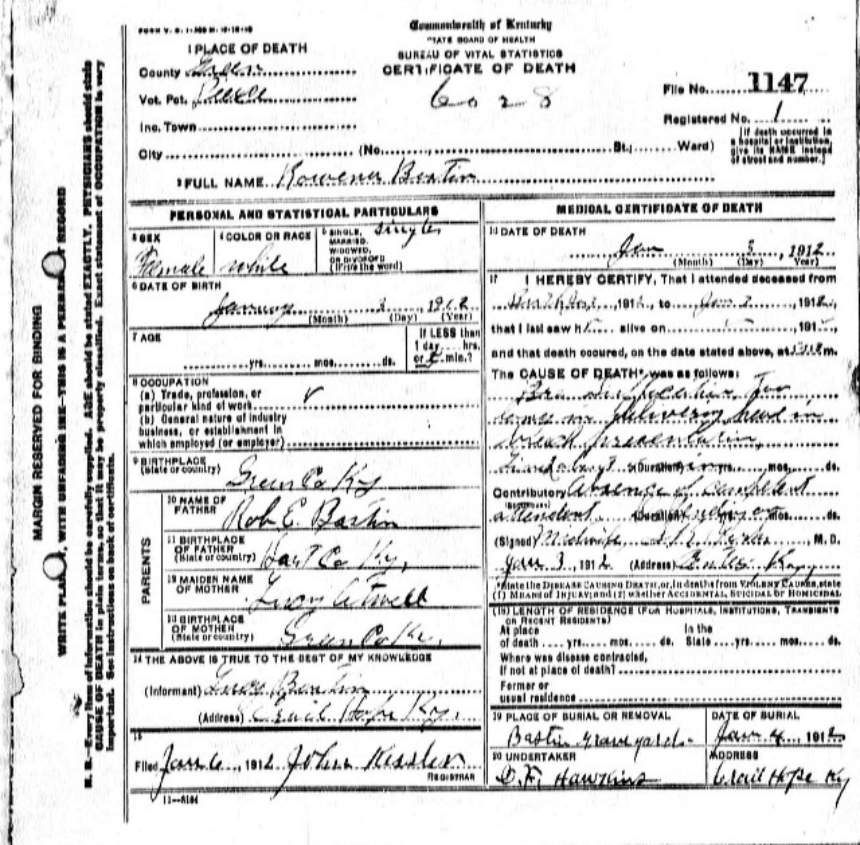 Commonwealth of Kentucky
STATE BOARD OF HEALTH
BUREAU OF VITAL STATISTICS
CERTIFICATE OF DEATH
6028
File No. 1147
Registered No. 1
[If death occurred in a hospital or institution, give its NAME instead of street and number.]
1 PLACE OF DEATH
County Green
Vot. Pct.
Inc. Town
City (No. St.; Ward)
2 FULL NAME Rowena Bastin
PERSONAL AND STATISTICAL PARTICULARS
3 SEX Female
4 COLOR OR RACE white
5 SINGLE, MARRIED, WIDOWED, OR DIVORCED (Write the word) single
6 DATE OF BIRTH
January 3, 1912
(Month) (Day) (Year)
7 AGE
yrs. mos. ds.
If LESS than 1 day hrs. or min.?
8 OCCUPATION
(a) Trade, profession, or particular kind of work
(b) General nature of industry business, or establishment in which employed (or employer)
9 BIRTHPLACE
(State or country) Green Co Ky
PARENTS
10 NAME OF FATHER Rob E. Bastin
11 BIRTHPLACE OF FATHER (State or country) Hart Co Ky,
12 MAIDEN NAME OF MOTHER
13 BIRTHPLACE OF MOTHER (State or country) Green Co Ky.
14 THE ABOVE IS TRUE TO THE BEST OF MY KNOWLEDGE
(Informant) Bastin
(Address) Hope Ky.
15
Filed Jan 6, 1912 John Kessler
REGISTRAR
11-8184
MEDICAL CERTIFICATE OF DEATH
16 DATE OF DEATH
Jan 3, 1912
(Month) (Day) (Year)
17 I HEREBY CERTIFY, That I attended deceased from
, 191 , to Jan , 1912,
that I last saw h alive on , 191 ,
and that death occured, on the date stated above, at m.
The CAUSE OF DEATH* was as follows:
delivery head in
breach presentation,
(Duration) yrs. mos. ds.
Contributory Absence of competent
attendent (Duration) mos. ds.
(Signed) Midwife, M. D.
Jan 3, 1912 (Address)
*State the DISEASE CAUSING DEATH, or, in deaths from VIOLENT CAUSES, state (1) MEANS OF INJURY; and (2) whether ACCIDENTAL, SUICIDAL or HOMICIDAL
(18) LENGTH OF RESIDENCE (FOR HOSPITALS, INSTITUTIONS, TRANSIENTS OR RECENT RESIDENTS)
At place of death yrs. mos. ds. In the State yrs. mos. ds.
Where was disease contracted,
If not at place of death?
Former or
usual residence
19 PLACE OF BURIAL OR REMOVAL
Bastin graveyard
DATE OF BURIAL
Jan 4, 1912
20 UNDERTAKER
O. F. Hawkins
ADDRESS
Hope Ky
MARGIN RESERVED FOR BINDING
WRITE PLAINLY, WITH UNFADING INK—THIS IS A PERMANENT RECORD
N. B.—Every item of information should be carefully supplied. AGE should be stated EXACTLY. PHYSICIANS should state
CAUSE OF DEATH in plain terms, so that it may be properly classified. Exact statement of OCCUPATION is very
important. See instructions on back of certificate.